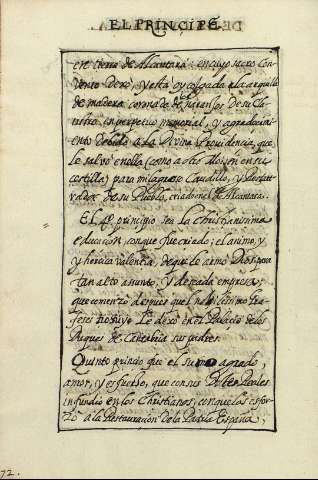 EL PRINCIPE
en tierra de Alcantara: en cuyo sacro con
vento dexò, y està oy colgada la arquilla
de madera con
ustro, in perpetuo memorial, y agradecim
iento debido à la Divina Providencia, que
le salvò en ella (como à otro Moysen en su
cestilla) para milagroso Caudillo, y Restau
rador de su Pueblo, criado en el de Alcantara.
El 4º principio sea la Christianissima
educacion, con que fue criado; el animo, y
y heroica valentia, de que le armò Dios para
tan alto asunto, y deseada empresa,
que comenzò despues que el
su tio
Duques de Cantabria sus padres.
Quinto principio que el sumo agrado,
amor, y esfuerzo, que con sus
infundio en los Christianos, con que los esfor
zò à la Restauracion de la Patria España;
72.